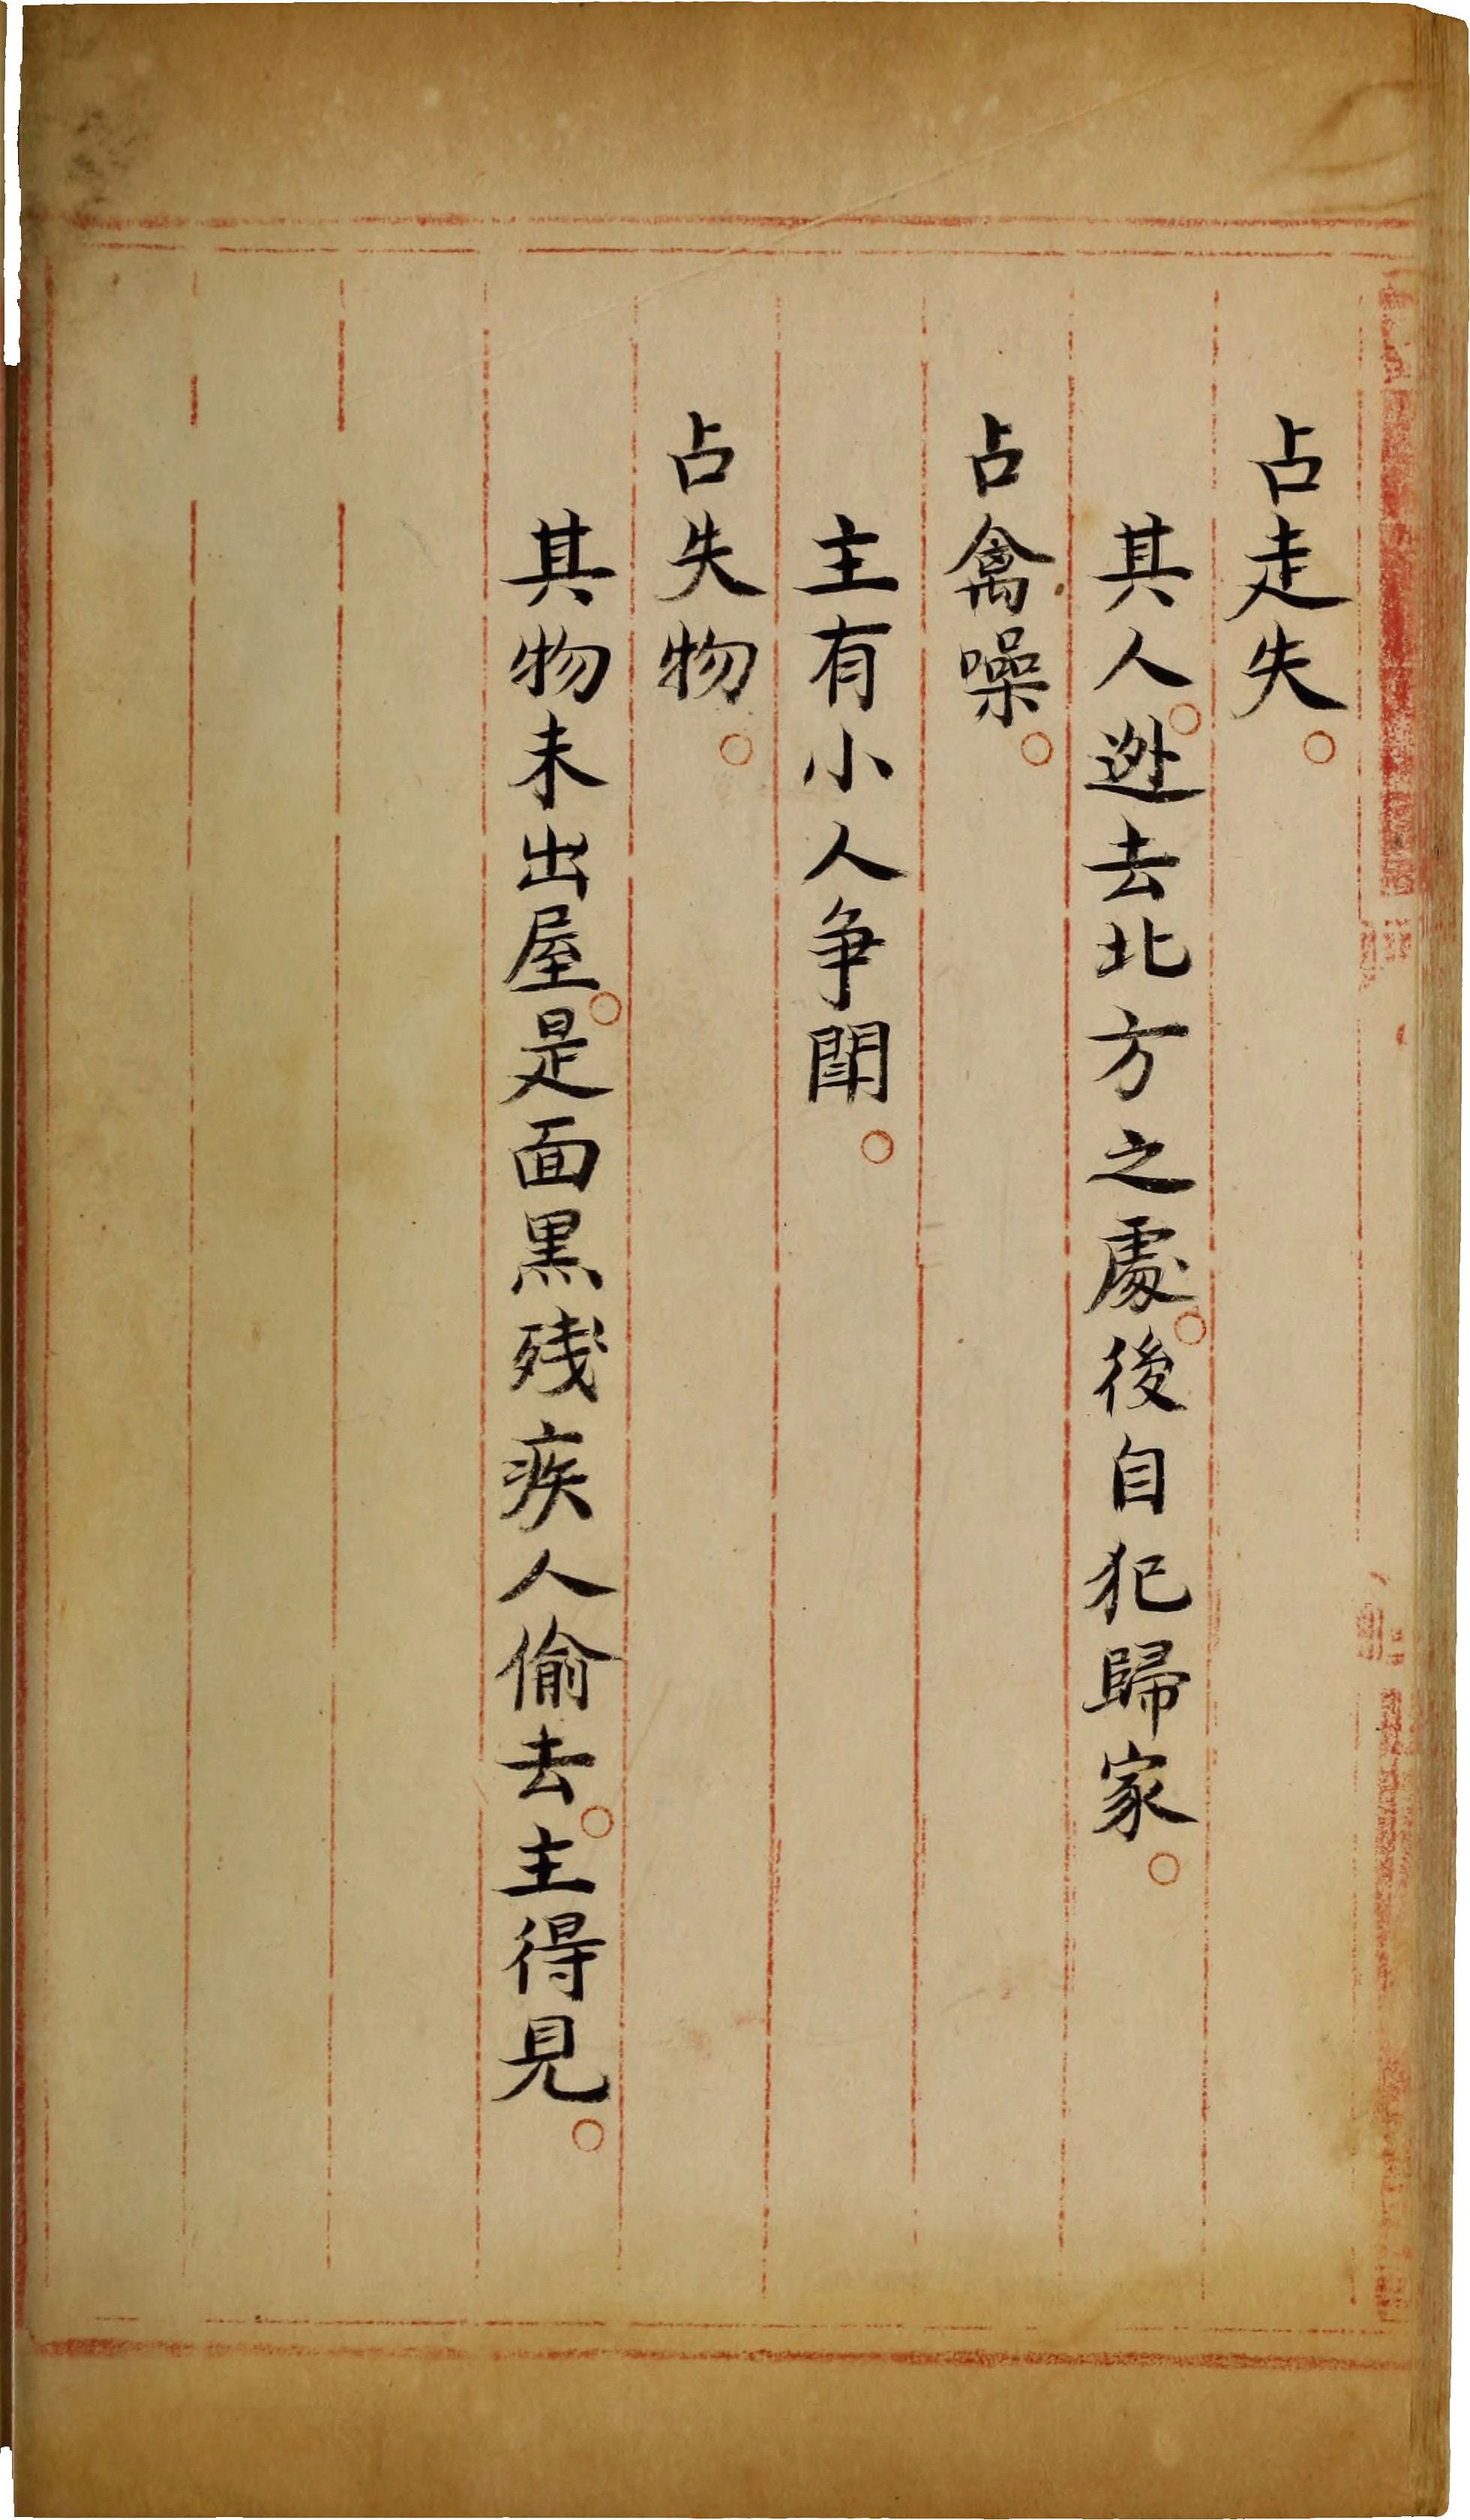 占走失。
其人。逃去北方之處。後自犯歸家。
占禽噪。
主有小人争鬧。
占失物。
其物未出屋。是面黑残疾人偷去。主得見。